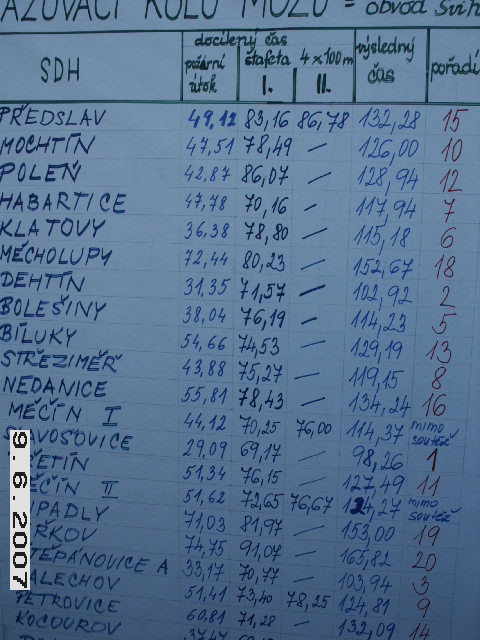 AZOVACÍ KOLO MUŽŮ = obvod Švih
SDH docílený čas výsledný čas pořadí
požární útok štafeta 4x100m
I. II.
PŘEDSLAV 49,12 83,16 86,78 132,28 15
MOCHTÍN 47,51 78,49 — 126,00 10
POLEŇ 42,87 86,07 — 128,94 12
HABARTICE 47,78 70,16 — 117,94 7
KLATOVY 36,38 78,80 — 115,18 6
MĚCHOLUPY 72,44 80,23 — 152,67 18
DEHTÍN 31,35 71,57 — 102,92 2
BOLEŠINY 38,04 76,19 — 114,23 5
BÍLUKY 54,66 74,53 — 129,19 13
STŘEZIMĚŘ 43,88 75,27 — 119,15 8
NEDANICE 55,81 78,43 — 134,24 16
MĚČÍN I 44,12 70,25 76,00 114,37 mimo soutěž
SLAVOŠOVICE 29,09 69,17 — 98,26 1
ŘETÍN 51,34 76,15 — 127,49 11
ĚČÍN II 51,62 72,65 76,67 124,27 mimo soutěž
PADLY 71,03 81,97 — 153,00 19
ŘKOV 74,75 91,07 — 165,82 20
TĚPÁNOVICE A 33,17 70,77 — 103,94 3
ALECHOV 51,41 73,40 78,25 124,81 9
PETROVICE 60,81 71,28 — 132,09 14
KOCOUROV 37,47
9. 6. 2007